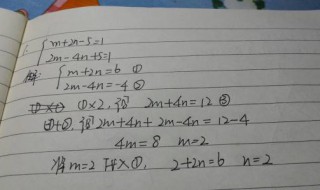 { m+2n-5=1
2m-4n+5=1
解: { m+2n=6 ①
2m-4n=-4 ②
①×2, 得 2m+4n=12 ③
③+②, 得 2m+4n+2m-4n=12-4
4m=8 m=2
将m=2代入①, 2+2n=6 n=2